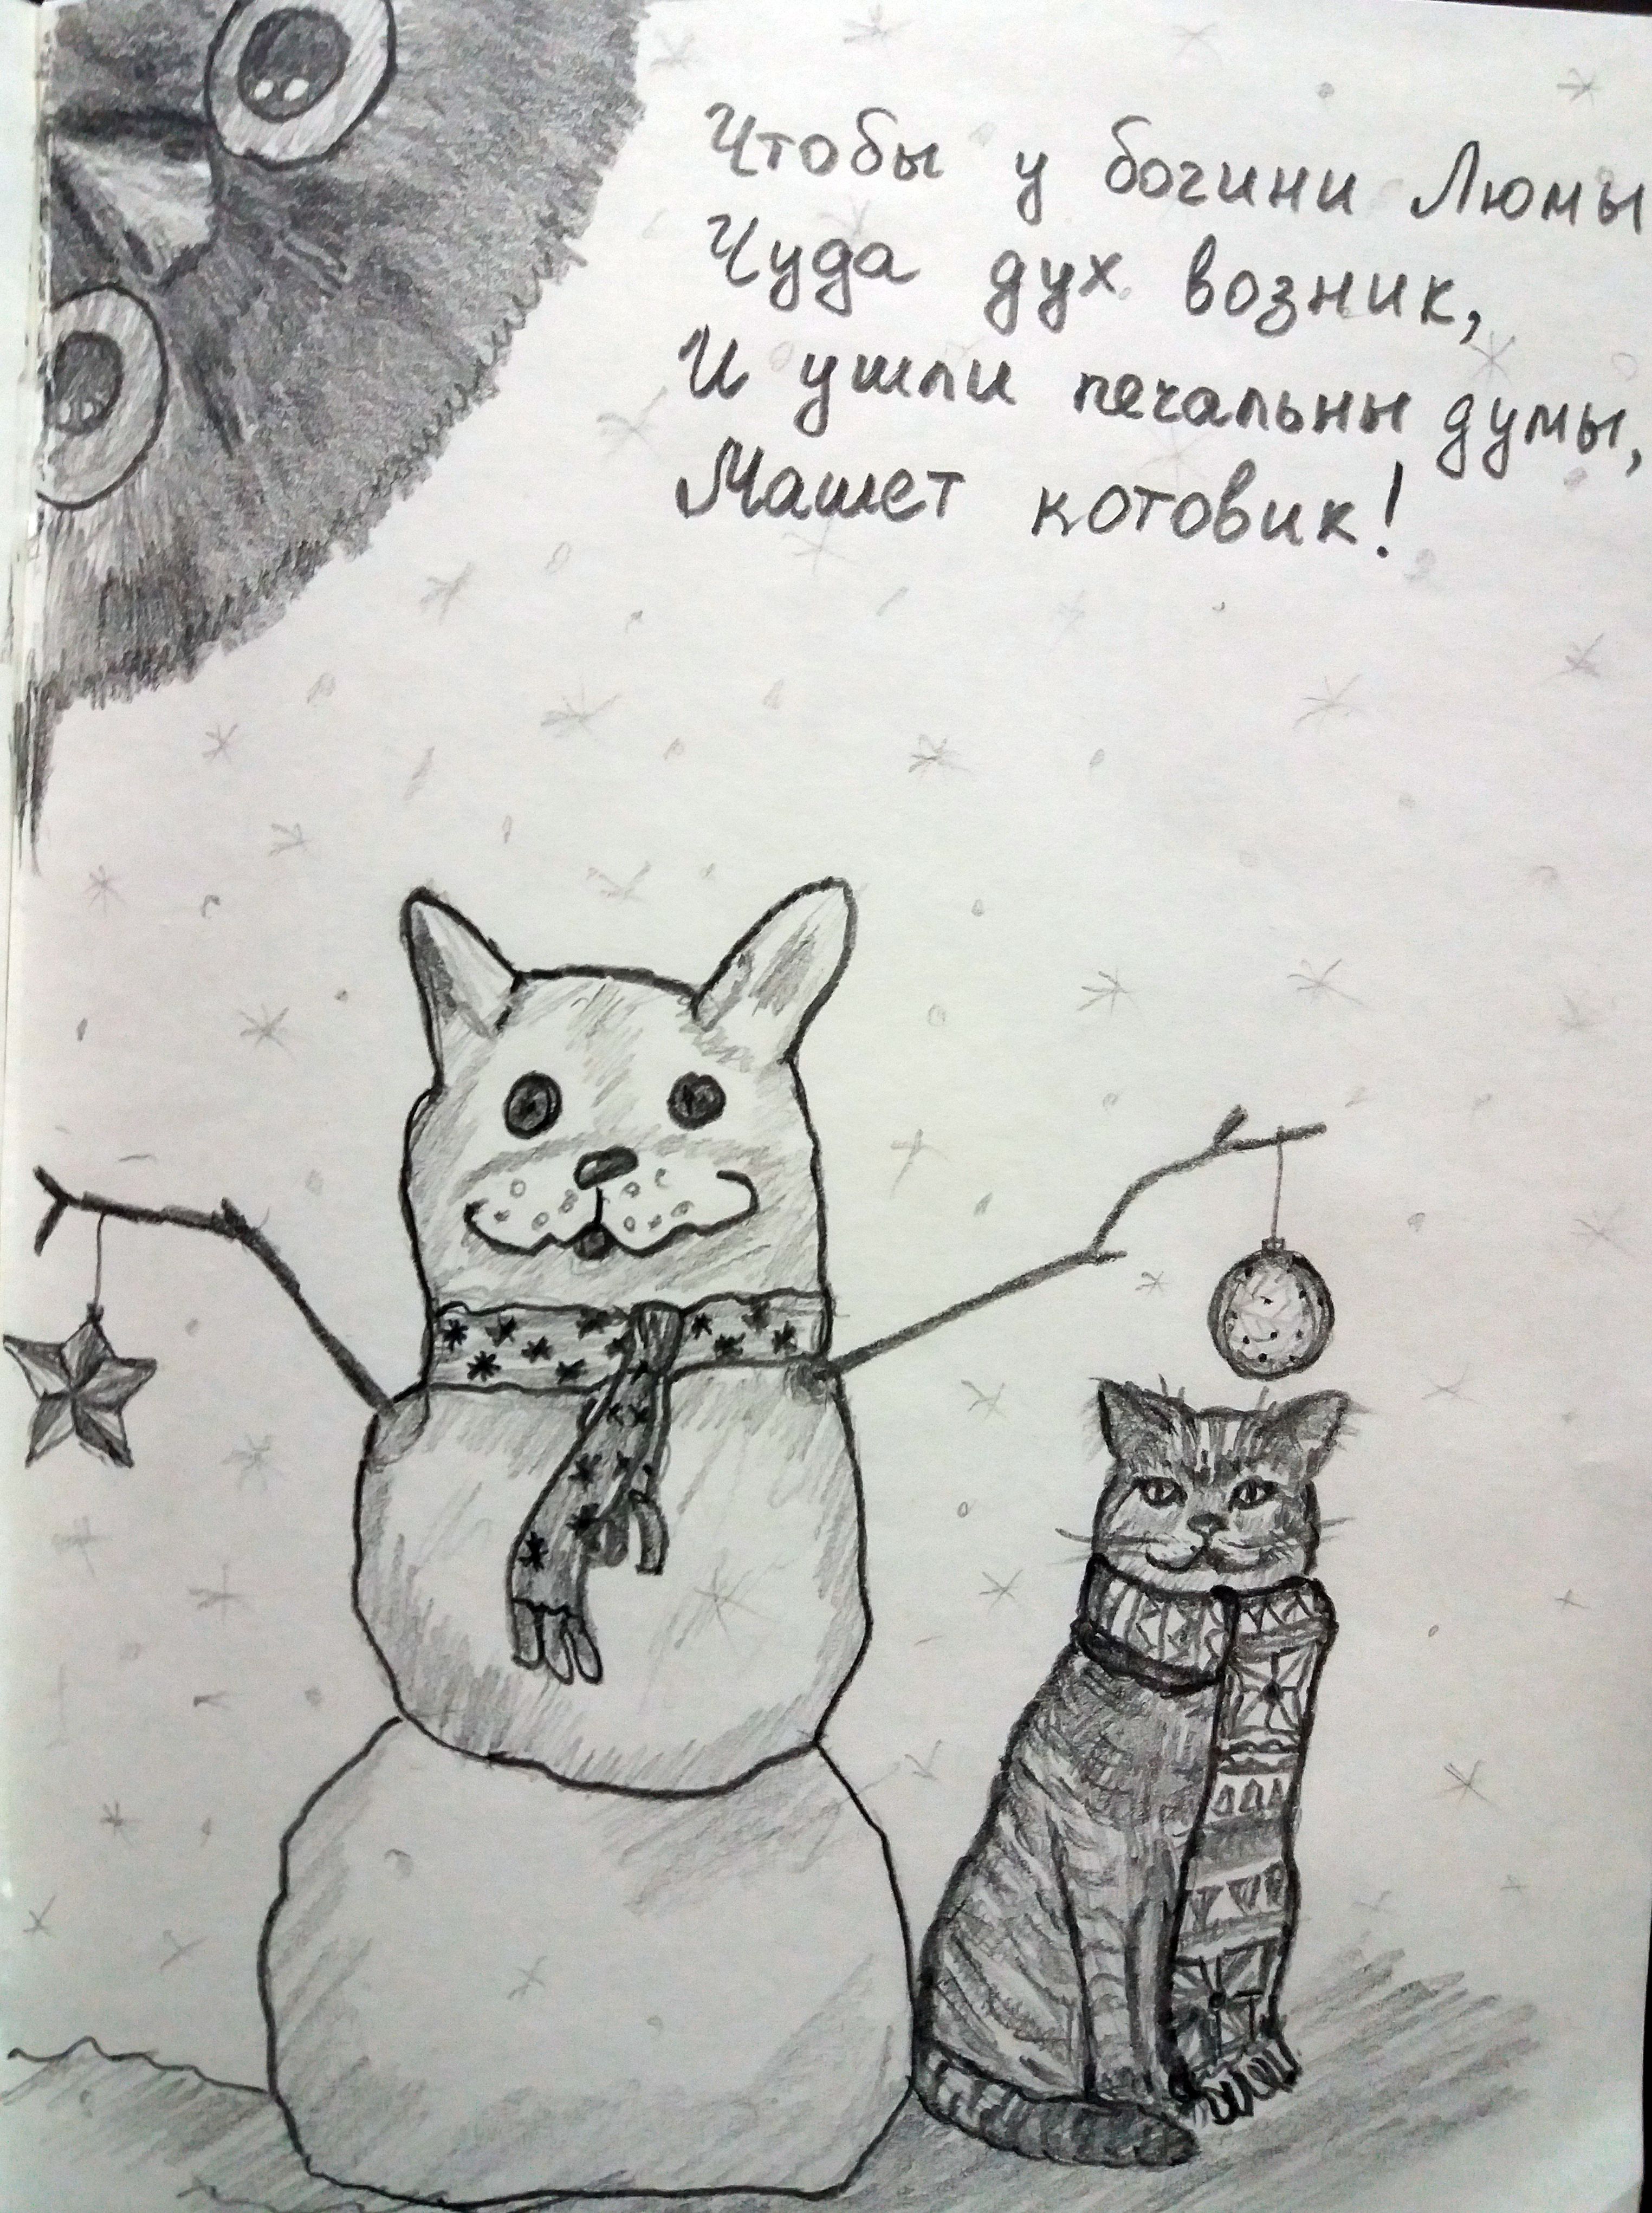 Чтобы у богини Люмы
Чуда дух возник,
И ушли печальны думы,
Машет котовик!